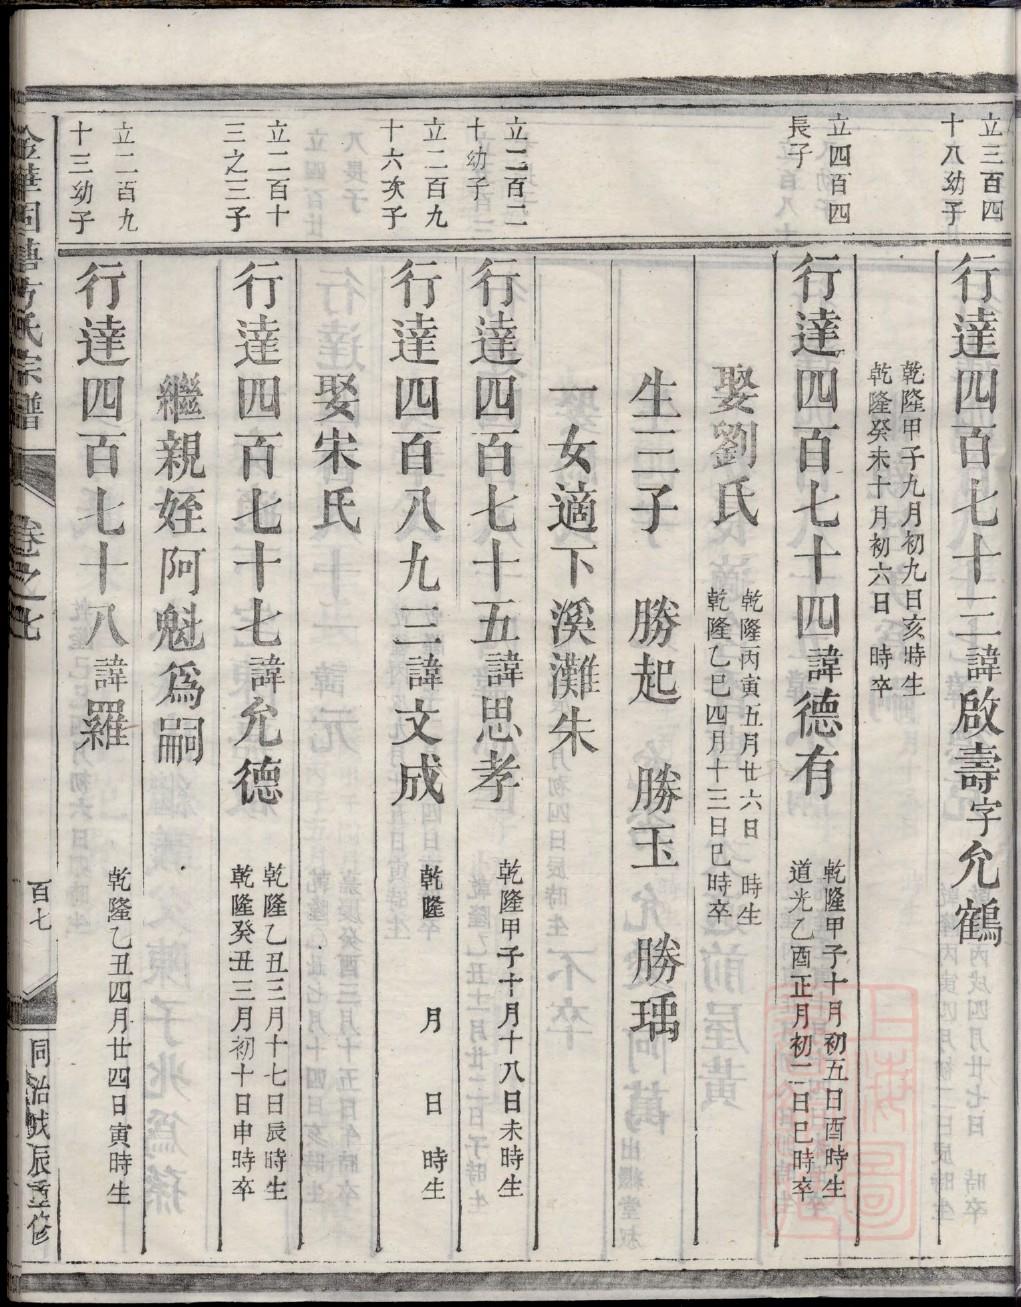 立三百四
十八幼子
行達四百七十三諱啟壽字允鶴
乾隆甲子九月初九日亥時生
乾隆癸未十月初六日　時卒
立四百四
長子
行達四百七十四諱德有
乾隆甲子十月初五日酉時生
道光乙酉正月初二日巳時卒
娶劉氏
乾隆丙寅五月廿六日　時生
乾隆乙巳四月十三日巳時卒
生三子　勝起　勝玉　勝瑀
立二百二
十幼子
行達四百七十五諱思孝
乾隆甲子十月十八日未時生
一女適下溪灘朱
立二百九
十六次子
行達四百八九三諱文成
乾隆　月　日　時生
娶宋氏
立二百十
三之三子
行達四百七十七諱允德
乾隆乙丑三月十七日辰時生
乾隆癸丑三月初十日申時卒
繼親姪阿魁為嗣
立二百九
十三幼子
行達四百七十八諱羅
乾隆乙丑四月廿四日寅時生
氏宗譜
卷之七
百七
同治戊辰重修